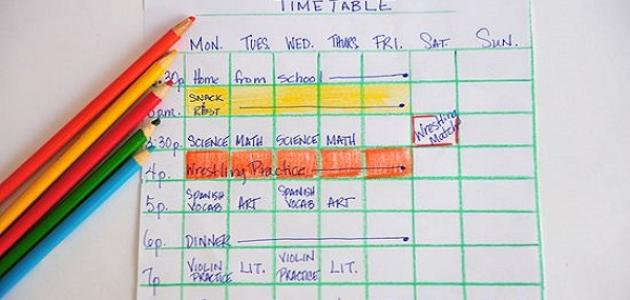 TIMETABLE
MON. TUES. WED. THURS. FRI. SAT. SUN.
30p Home from school
SNACK & REST
pm.
3:30p. SCIENCE MATH SCIENCE MATH
Wrestling Match
4p. Wrestling Practice
5p. SPANISH VOCAB ART SPANISH VOCAB ART
6p. DINNER
7p VIOLIN PRACTICE LIT. VIOLIN PRACTICE LIT.